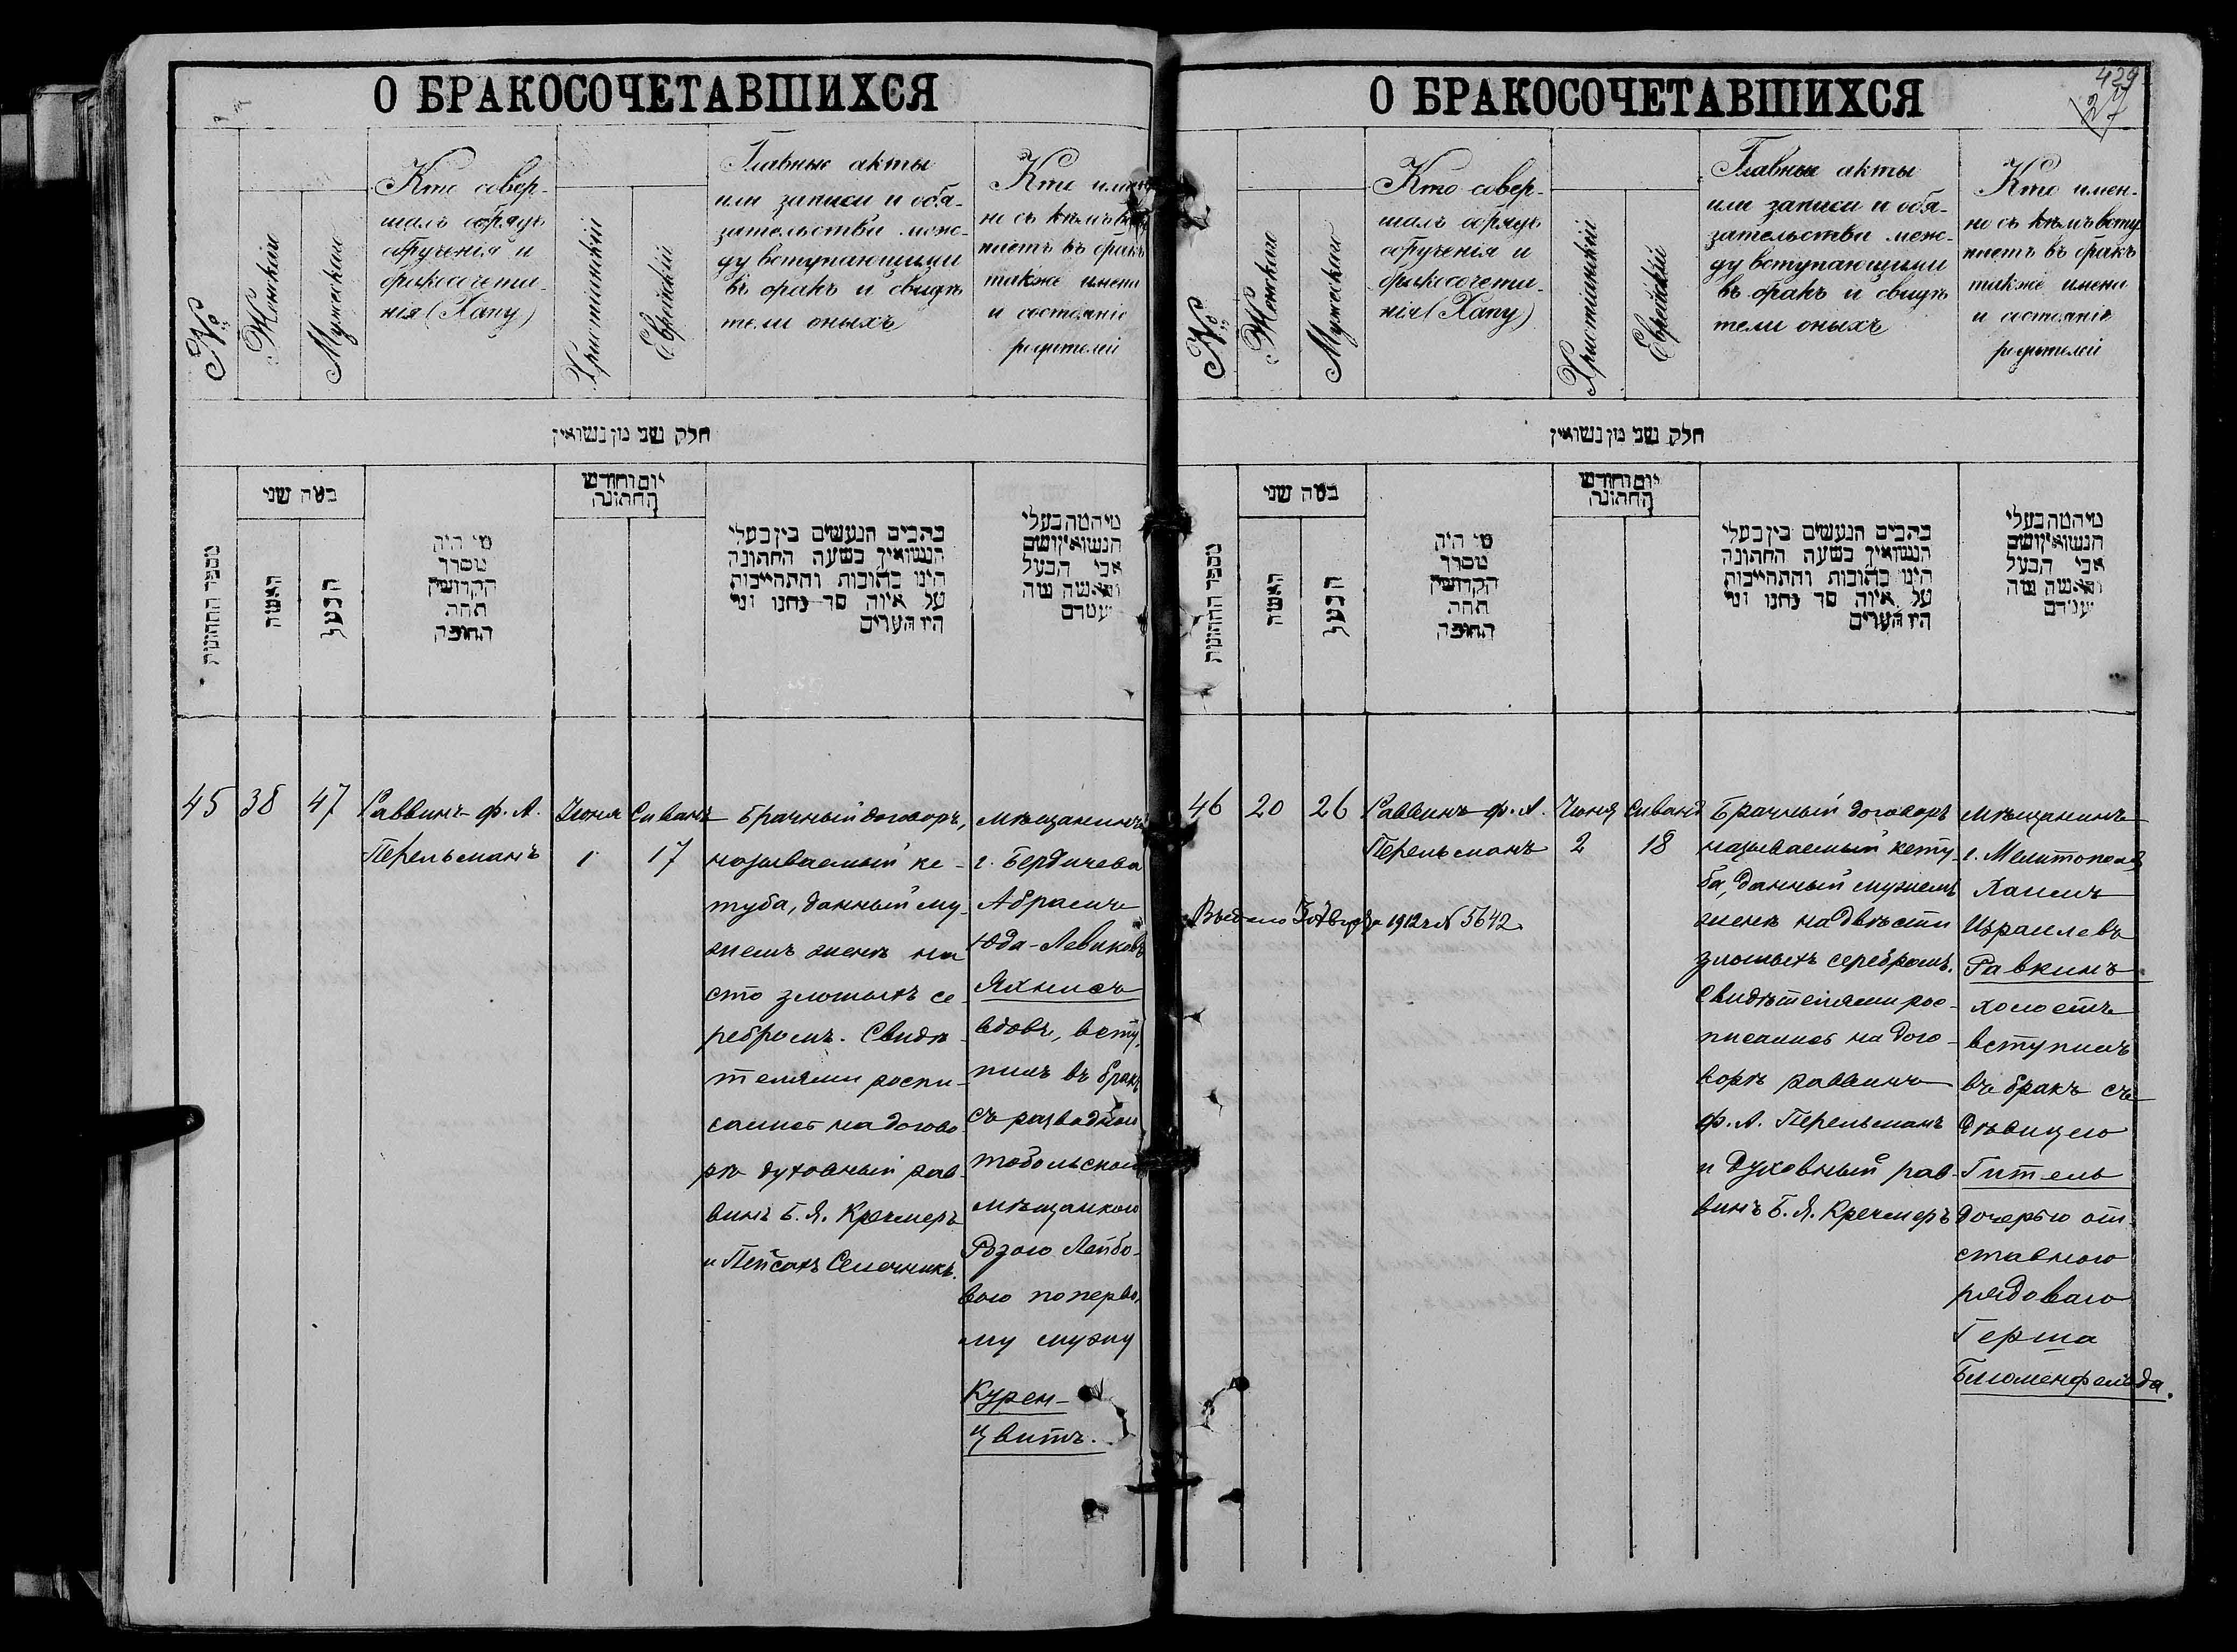 О БРАКОСОЧЕТАВШИХСЯ
№
Женскій
Мужескій
Кто совер-
шалъ обрядъ
обрученія и
бракосочета-
нія (Хапу)
Христіанскій
Еврейскій
Главные акты
или записи и обя-
зательства меж-
ду вступающими
въ бракъ и свидѣ
тели оныхъ
Кто имен
но съ кѣмъ всту
паетъ въ бракъ
также имена
и состояніе
родителей
חלק שני מן נשואין
מספר החתונות
כמה שני
האשה
הבעל
מי היה
מסדר
הקדושין
תחת
החופה
יום וחודש
החתונה
כתבים הנעשים בין בעלי
הנשואין בשעת החתונה
היינו כתובות והתחייבות
על איזה סך נתנו ומי
היו העדים
מי המה בעלי
הנשואין ושם
אבי הבעל
והאשה ומה
מעמדם
45
38
47
Раввинъ Ф. А.
Перельманъ
Іюня
1
Сиванъ
17
Брачный договоръ,
называемый ке-
туба, данный му-
жемъ женѣ на
сто злотыхъ се-
ребромъ. Свидѣ-
телями роспи-
сались на догово-
рѣ духовный рав-
винъ Б. Я. Кремеръ
и Пейсахъ Семечникъ.
мѣщанинъ
г. Бердичева
Абрамъ
Юда-Левиковъ
Яхнисъ
вдовъ, всту-
пилъ въ бракъ
съ разводною
тобольскою
мѣщанкою
Розою Лейбо-
вою по перво-
му мужу
Курен-
цвитъ.
О БРАКОСОЧЕТАВШИХСЯ
429
27
№
Женскій
Мужескій
Кто совер-
шалъ обрядъ
обрученія и
бракосочета-
нія (Хапу)
Христіанскій
Еврейскій
Главные акты
или записи и обя-
зательства меж-
ду вступающими
въ бракъ и свидѣ
тели оныхъ
Кто имен-
но съ кѣмъ всту
паетъ въ бракъ
также имена
и состояніе
родителей
חלק שני מן נשואין
מספר החתונות
כמה שני
האשה
הבעל
מי היה
מסדר
הקדושין
תחת
החופה
יום וחודש
החתונה
כתבים הנעשים בין בעלי
הנשואין בשעת החתונה
היינו כתובות והתחייבות
על איזה סך נתנו ומי
היו העדים
מי המה בעלי
הנשואין ושם
אבי הבעל
והאשה ומה
מעמדם
46
20
26
Раввинъ Ф. А.
Перельманъ
Іюня
2
Сиванъ
18
Выдано 30 1912 г. № 5642
Брачный договоръ
называемый кету-
ба, данный мужемъ
женѣ на двѣсти
злотыхъ серебромъ.
Свидѣтелями рос-
писались на дого-
ворѣ раввинъ
Ф. А. Перельманъ
и духовный рав-
винъ Б. Я. Кремеръ
мѣщанинъ
г. Мелитополя
Хаимъ
Израилевъ
Равкинъ
холостъ
вступилъ
въ бракъ съ
дѣвицею
Гитель
дочерью от-
ставного
рядоваго
Герша
Блюменфельда.